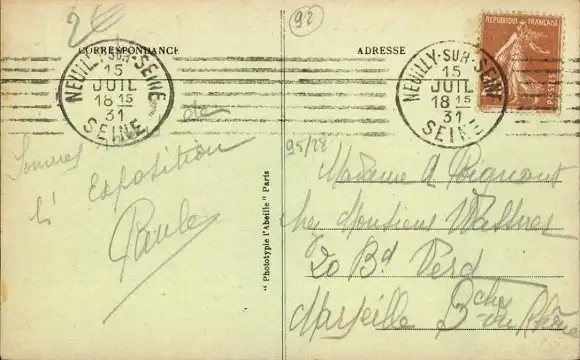 2€
92
CORRESPONDANCE
ADRESSE
NEUILLY-SUR-SEINE
15
JUIL
18 15
31
SEINE
NEUILLY-SUR-SEINE
15
JUIL
18 15
31
SEINE
REPUBLIQUE FRANÇAISE
POSTES
Sommes de
l'Exposition
Paule
95/28
" Phototypie l'Abeille " Paris
Madame
chez Monsieur
20 Bd Verd
Marseille Bches
du Rhône